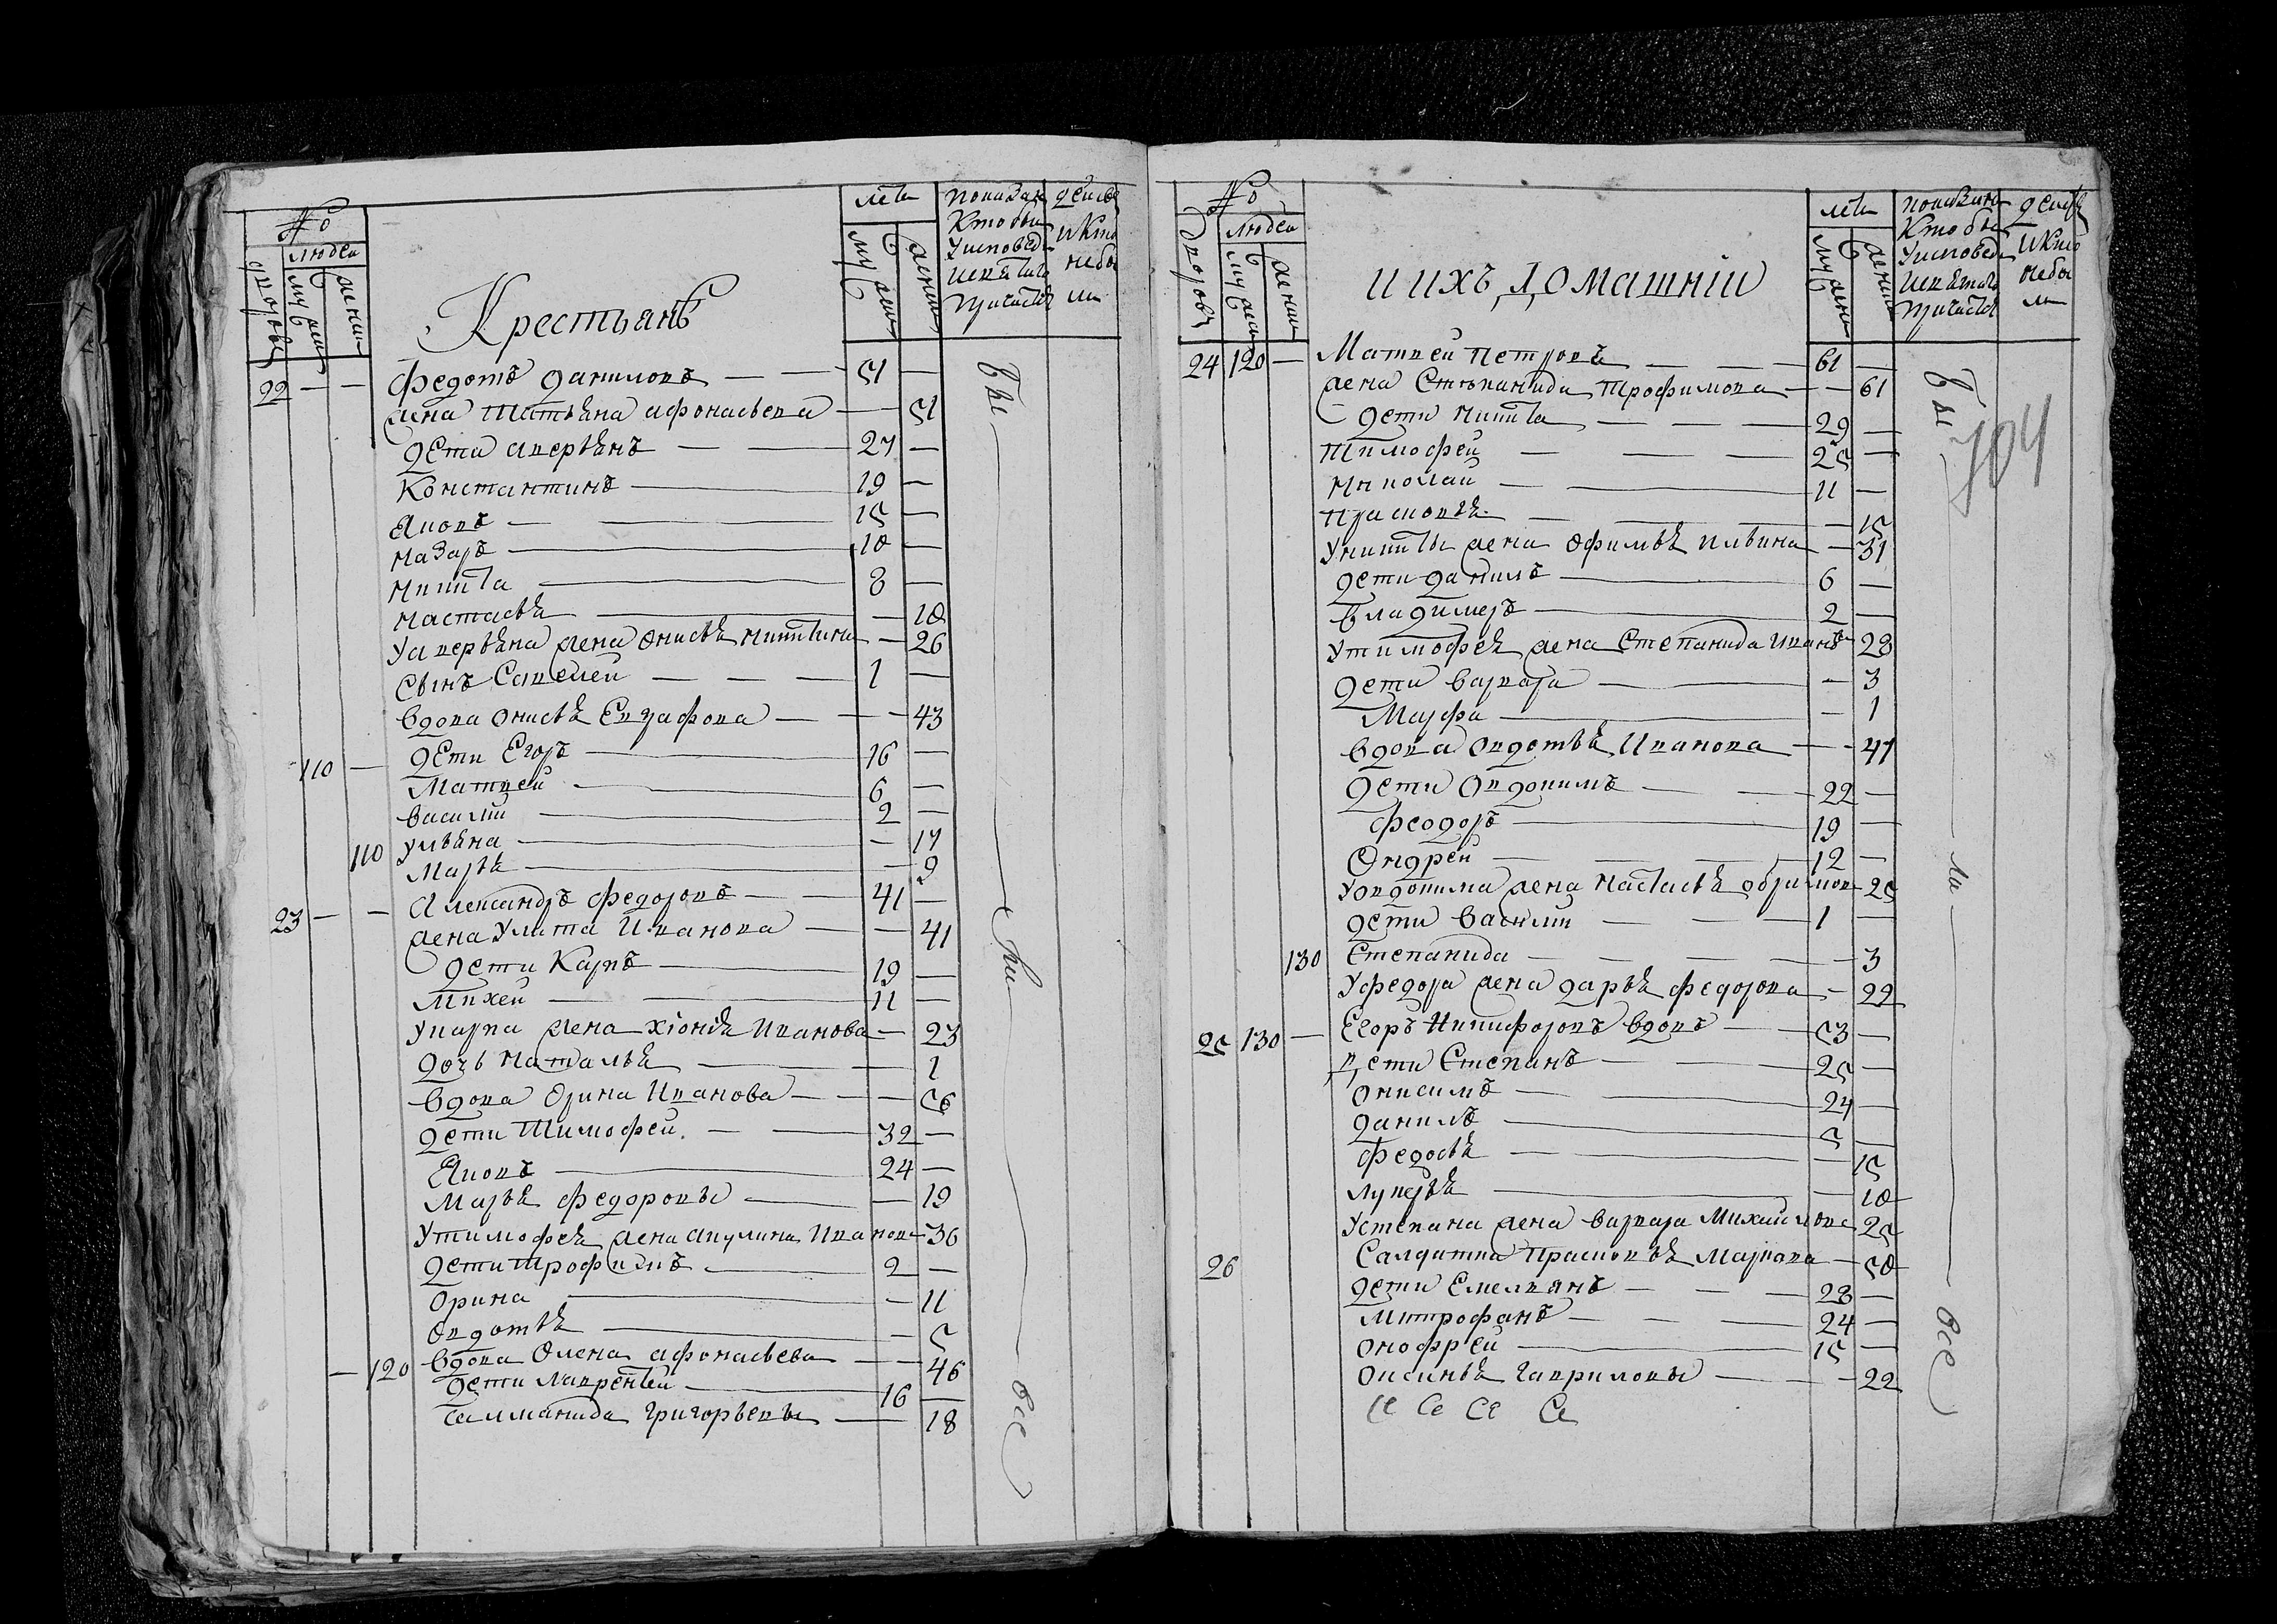 №
людеи
дворовъ
мужеи
женин
Крестьянъ
лета
мужеи
женин
22 — — Федотъ Даниловъ — 51 —
жена Татьяна Афонасьева — 51
дети Аверьянъ — 27 —
Константинъ — 19 —
Яковъ — 15 —
Назаръ — 10 —
Никита — 8 —
Настасья — 10
У Аверьяна жена Онисья Никитина — 26
сынъ Савелей — 1 —
вдова Онисья Евграфова — 43
110 — дети Егоръ — 16 —
Матвей — 6 —
Василий — 2 —
110 Ульяна — 17
Марья — 9
23 — — Александръ Федоровъ — 41 —
жена Улита Иванова — 41
дети Карпъ — 19 —
Михеи — 11 —
У Карпа жена Хионья Иванова — 23
дочь Наталья — 1
вдова Орина Иванова — 56
дети Тимофей — 32 —
Яковъ — 24 —
Марья Федоровы — 19
У Тимофея жена Акулина Иванов 36
дети Трофимъ — 2 —
Орина — 11
Овдотья — 5
— 120 вдова Олена Афонасьева — 46
дети Лаврентей — 16 —
Григорьевы — 18
Бы ли все
№
людеи
дворовъ
мужеи
женин
и ихъ домашніи
лета
мужеи
женин
24 120 — Матвеи Петровъ — 61 —
жена Степанида Трофимова — 61
дети Никита — 29 —
Тимофей — 25 —
Николаи — 11 —
Прасковья — 15
У Никиты жена Офимья Ильина — 31
дети Данилъ — 6 —
Владимеръ — 2 —
У Тимофея жена Степанида Иванов 28
дети Варвара — 3
Марфа — 1
вдова Овдотья Иванова — 47
дети Овдокимъ — 22 —
Феодоръ — 19 —
Ондреи — 12 —
У Овдокима жена Настасья 25
дети Василии — 1 —
130 Степанида — 3
У Федора жена Дарья Федорова — 22
25 130 — Егоръ Никифоровъ вдовъ — 53 —
дети Степанъ — 25 —
Онисимъ — 24 —
Данилъ — 5 —
Федосья — 15
Лукерья — 10
У Степана жена Варвара Михаилова 25
26 Салдатка Прасковья Маркова — 50
дети Емельянъ — 28 —
Митрофанъ — 24 —
Онофреи — 15 —
Оксинья Гавриловы — 22
Се Се Се Се
Бы ли все
704